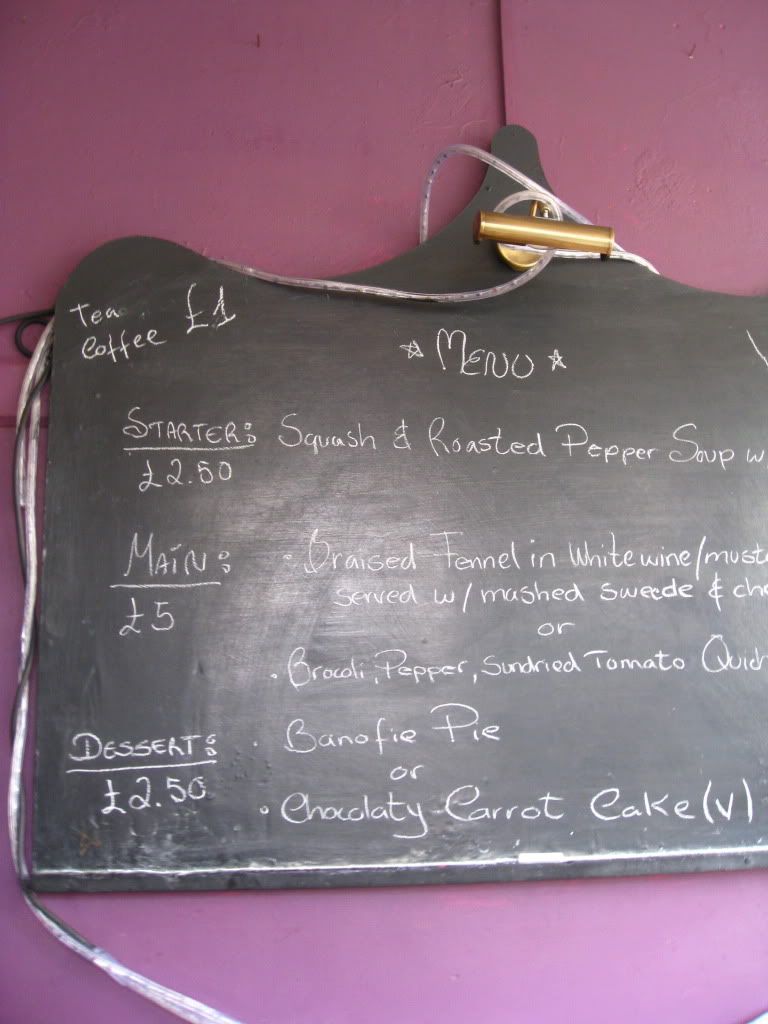 Tea £1
Coffee
☆ MENU ☆
STARTER: Squash & Roasted Pepper Soup w
£2.50
MAIN: • Braised Fennel in White wine/musta
£5 served w/ mashed swede & che
or
• Brocoli, Pepper, Sundried Tomato Quich
DESSERT: • Banofie Pie
or
£2.50
• Chocolaty Carrot Cake (v)